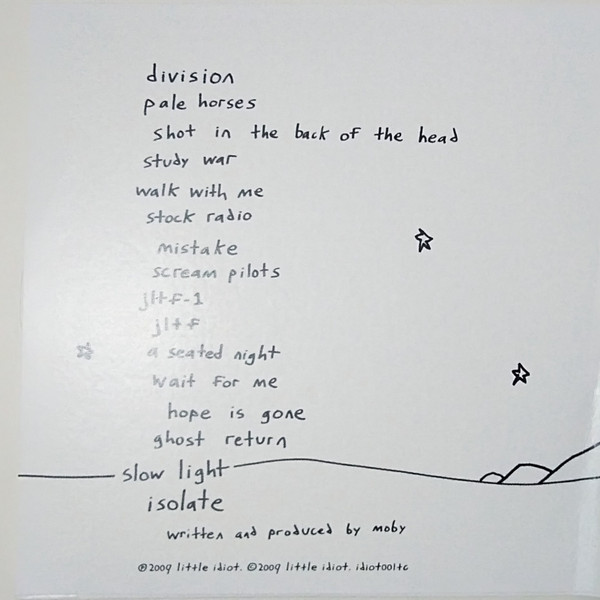 division
pale horses
shot in the back of the head
study war
walk with me
stock radio
mistake
scream pilots
jltf-1
jltf
a seated night
wait for me
hope is gone
ghost return
slow light
isolate
written and produced by moby
℗2009 little idiot. ©2009 little idiot. idiot001tc